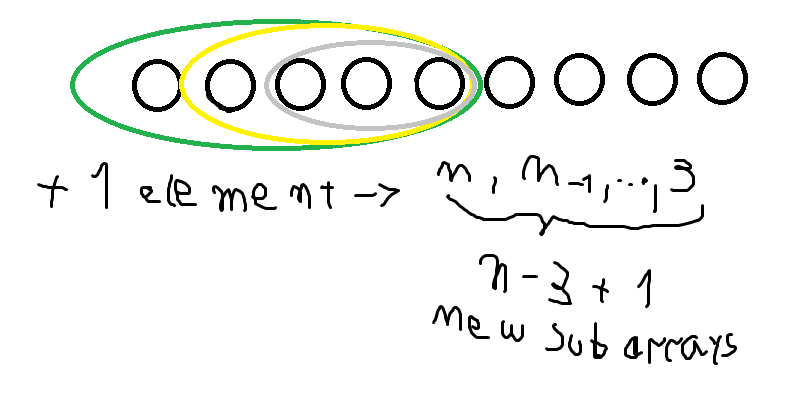 + 1 element → n, n-1, ..., 3
n - 3 + 1
new subarrays